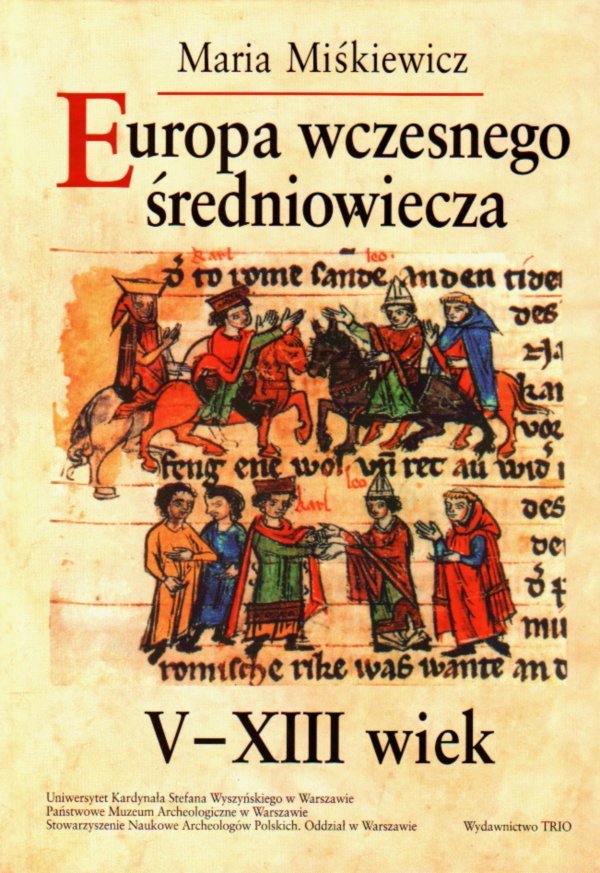 Maria Miśkiewicz
Europa wczesnego
średniowiecza
karl leo
to rome sande anden tide
des
feng ene wol vñ ret au wid
leo
karl
des
romische rike was wante and
V–XIII wiek
Uniwersytet Kardynała Stefana Wyszyńskiego w Warszawie
Państwowe Muzeum Archeologiczne w Warszawie
Stowarzyszenie Naukowe Archeologów Polskich. Oddział w Warszawie
Wydawnictwo TRIO